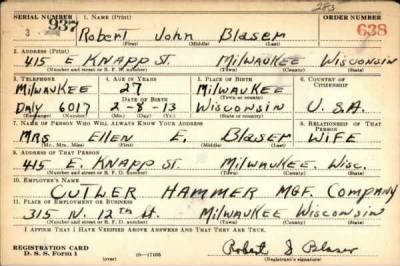 283
SERIAL NUMBER 1. NAME (Print) ORDER NUMBER
3 937 Robert John Blaser 638
(First) (Middle) (Last)
2. ADDRESS (Print)
415 E KNAPP ST. MILWAUKEE WISCONSIN
(Number and street or R. F. D. number) (Town) (County) (State)
3. TELEPHONE 4. AGE IN YEARS 5. PLACE OF BIRTH 6. COUNTRY OF CITIZENSHIP
MILWAUKEE 27 MILWAUKEE
DATE OF BIRTH (Town or county)
DALY 6017 2-8-13 WISCONSIN U.S.A.
7. NAME OF PERSON WHO WILL ALWAYS KNOW YOUR ADDRESS 8. RELATIONSHIP OF THAT PERSON
MRS ELLEN E. BLASER WIFE
(Mr., Mrs., Miss) (First) (Middle) (Last)
9. ADDRESS OF THAT PERSON
415 E. KNAPP ST MILWAUKEE, WISC.
(Number and street or R. F. D. number) (Town) (County) (State)
10. EMPLOYER'S NAME
CUTLER HAMMER MGF. COMPANY
11. PLACE OF EMPLOYMENT OR BUSINESS
315 N. 12TH St. MILWAUKEE WISCONSIN
(Number and street or R. F. D. number) (Town) (County) (State)
I AFFIRM THAT I HAVE VERIFIED ABOVE ANSWERS AND THAT THEY ARE TRUE.
REGISTRATION CARD Robert J Blaser
D. S. S. Form 1 (over) (Registrant's signature)